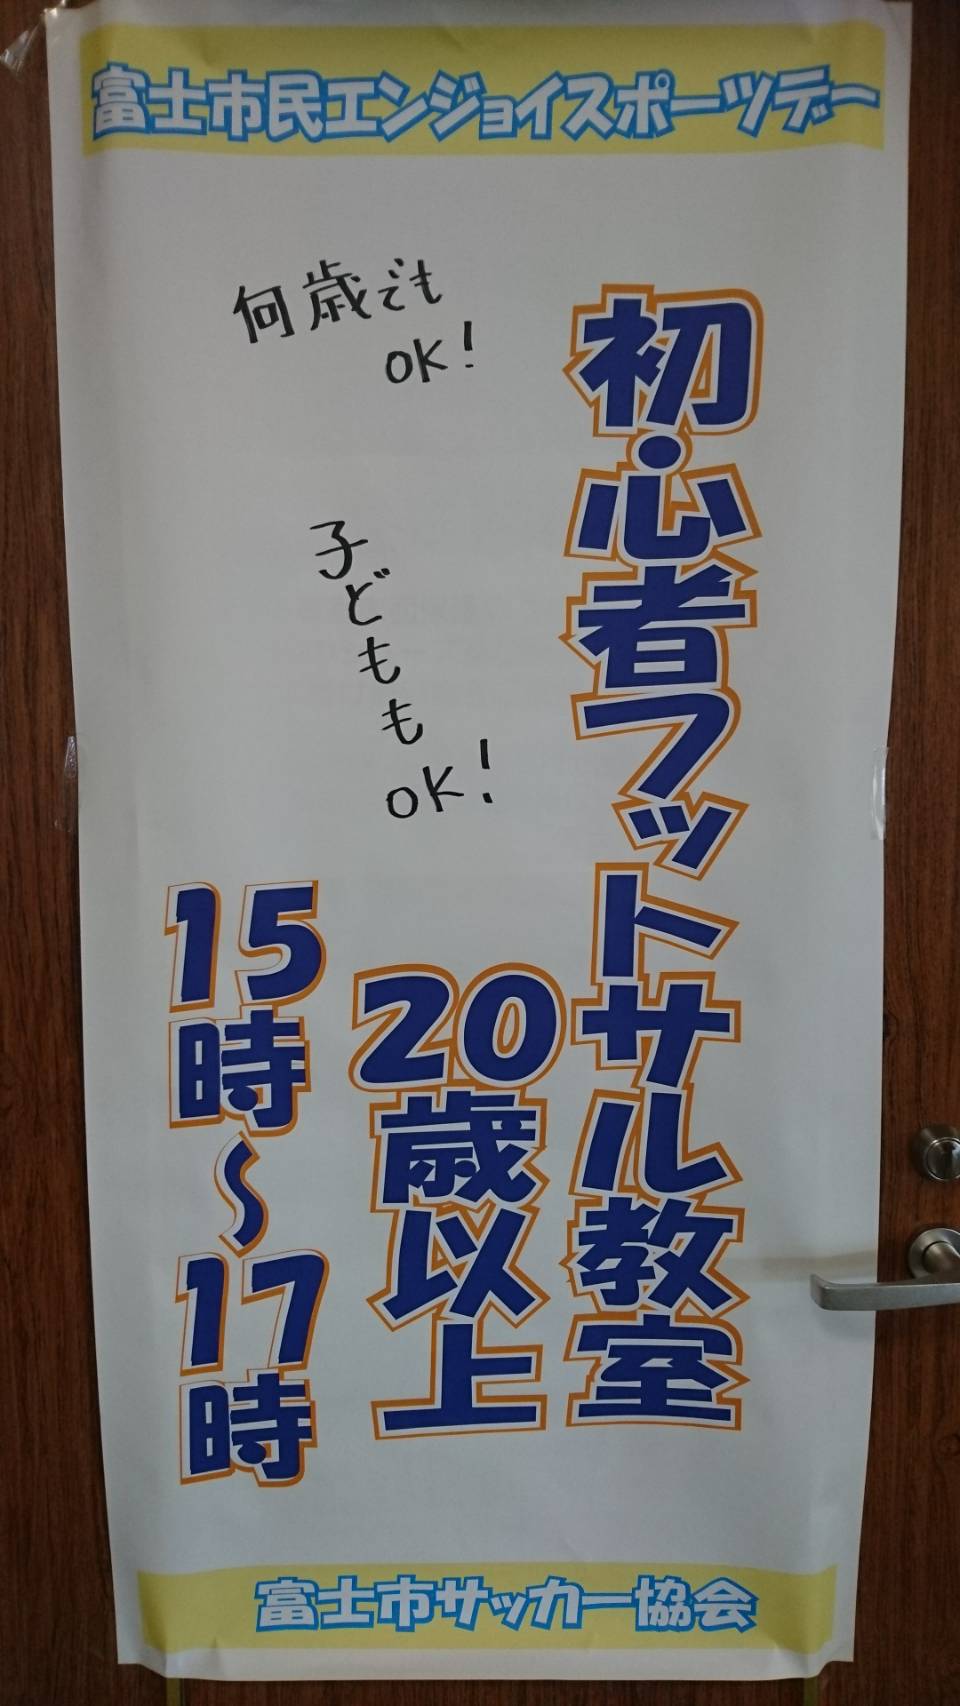 富士市民エンジョイスポーツデー
初心者フットサル教室
20歳以上
15時～17時
何歳でも
OK!
子どもも
OK!
富士市サッカー協会